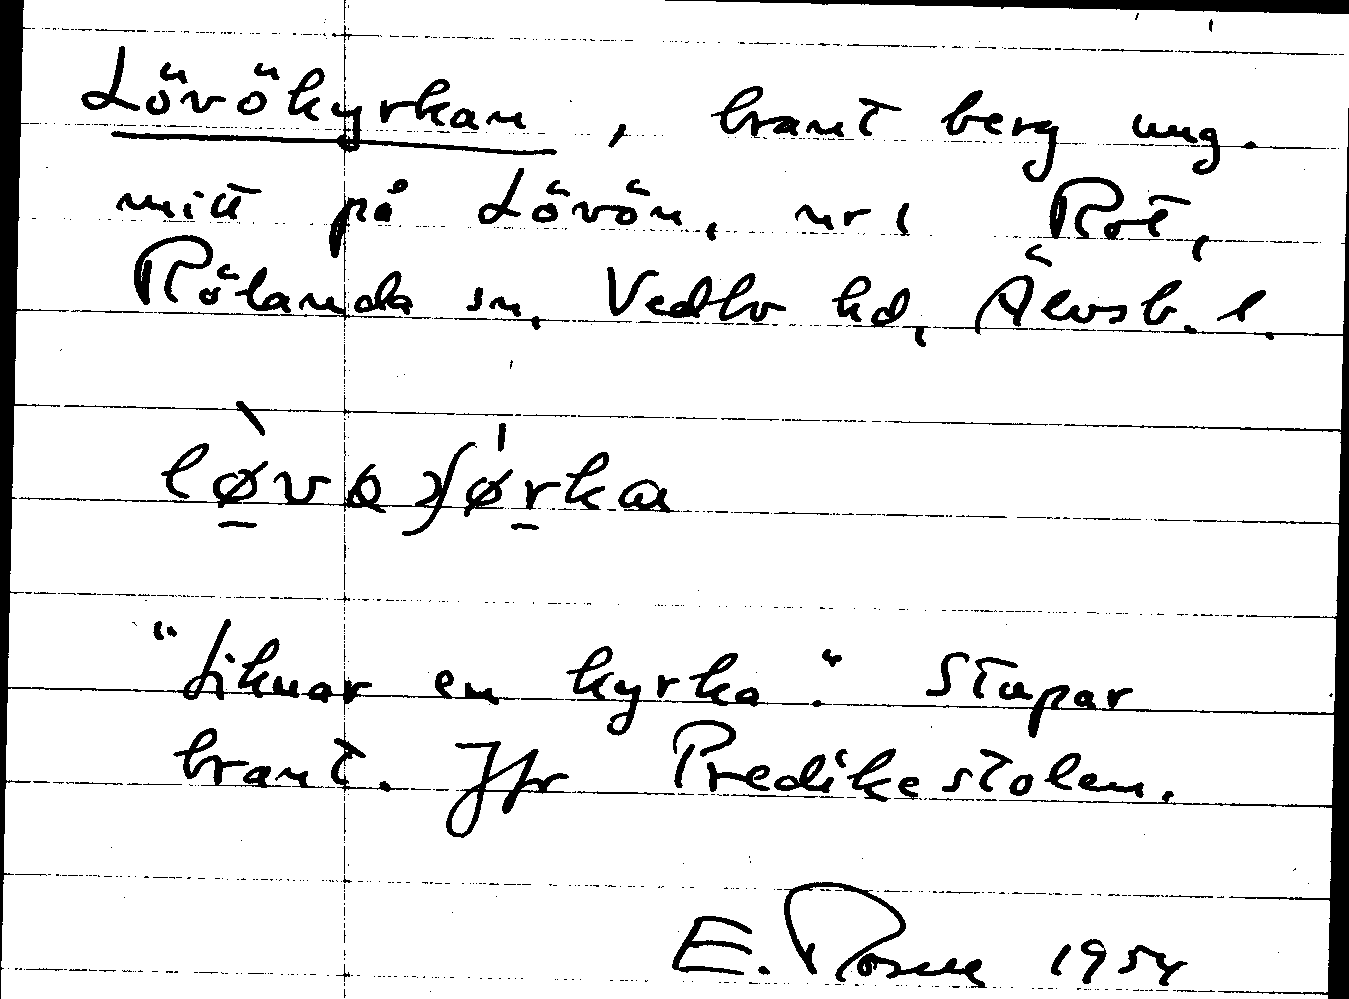 Lövökyrkan, brant berg ung.
mitt på Lövön, nr 1 Rot,
Rölanda sn, Vedbo hd, Älvsb. l.
"Liknar en kyrka." Stupar
brant. Jfr Predikestolen.
E. Rosell 1954